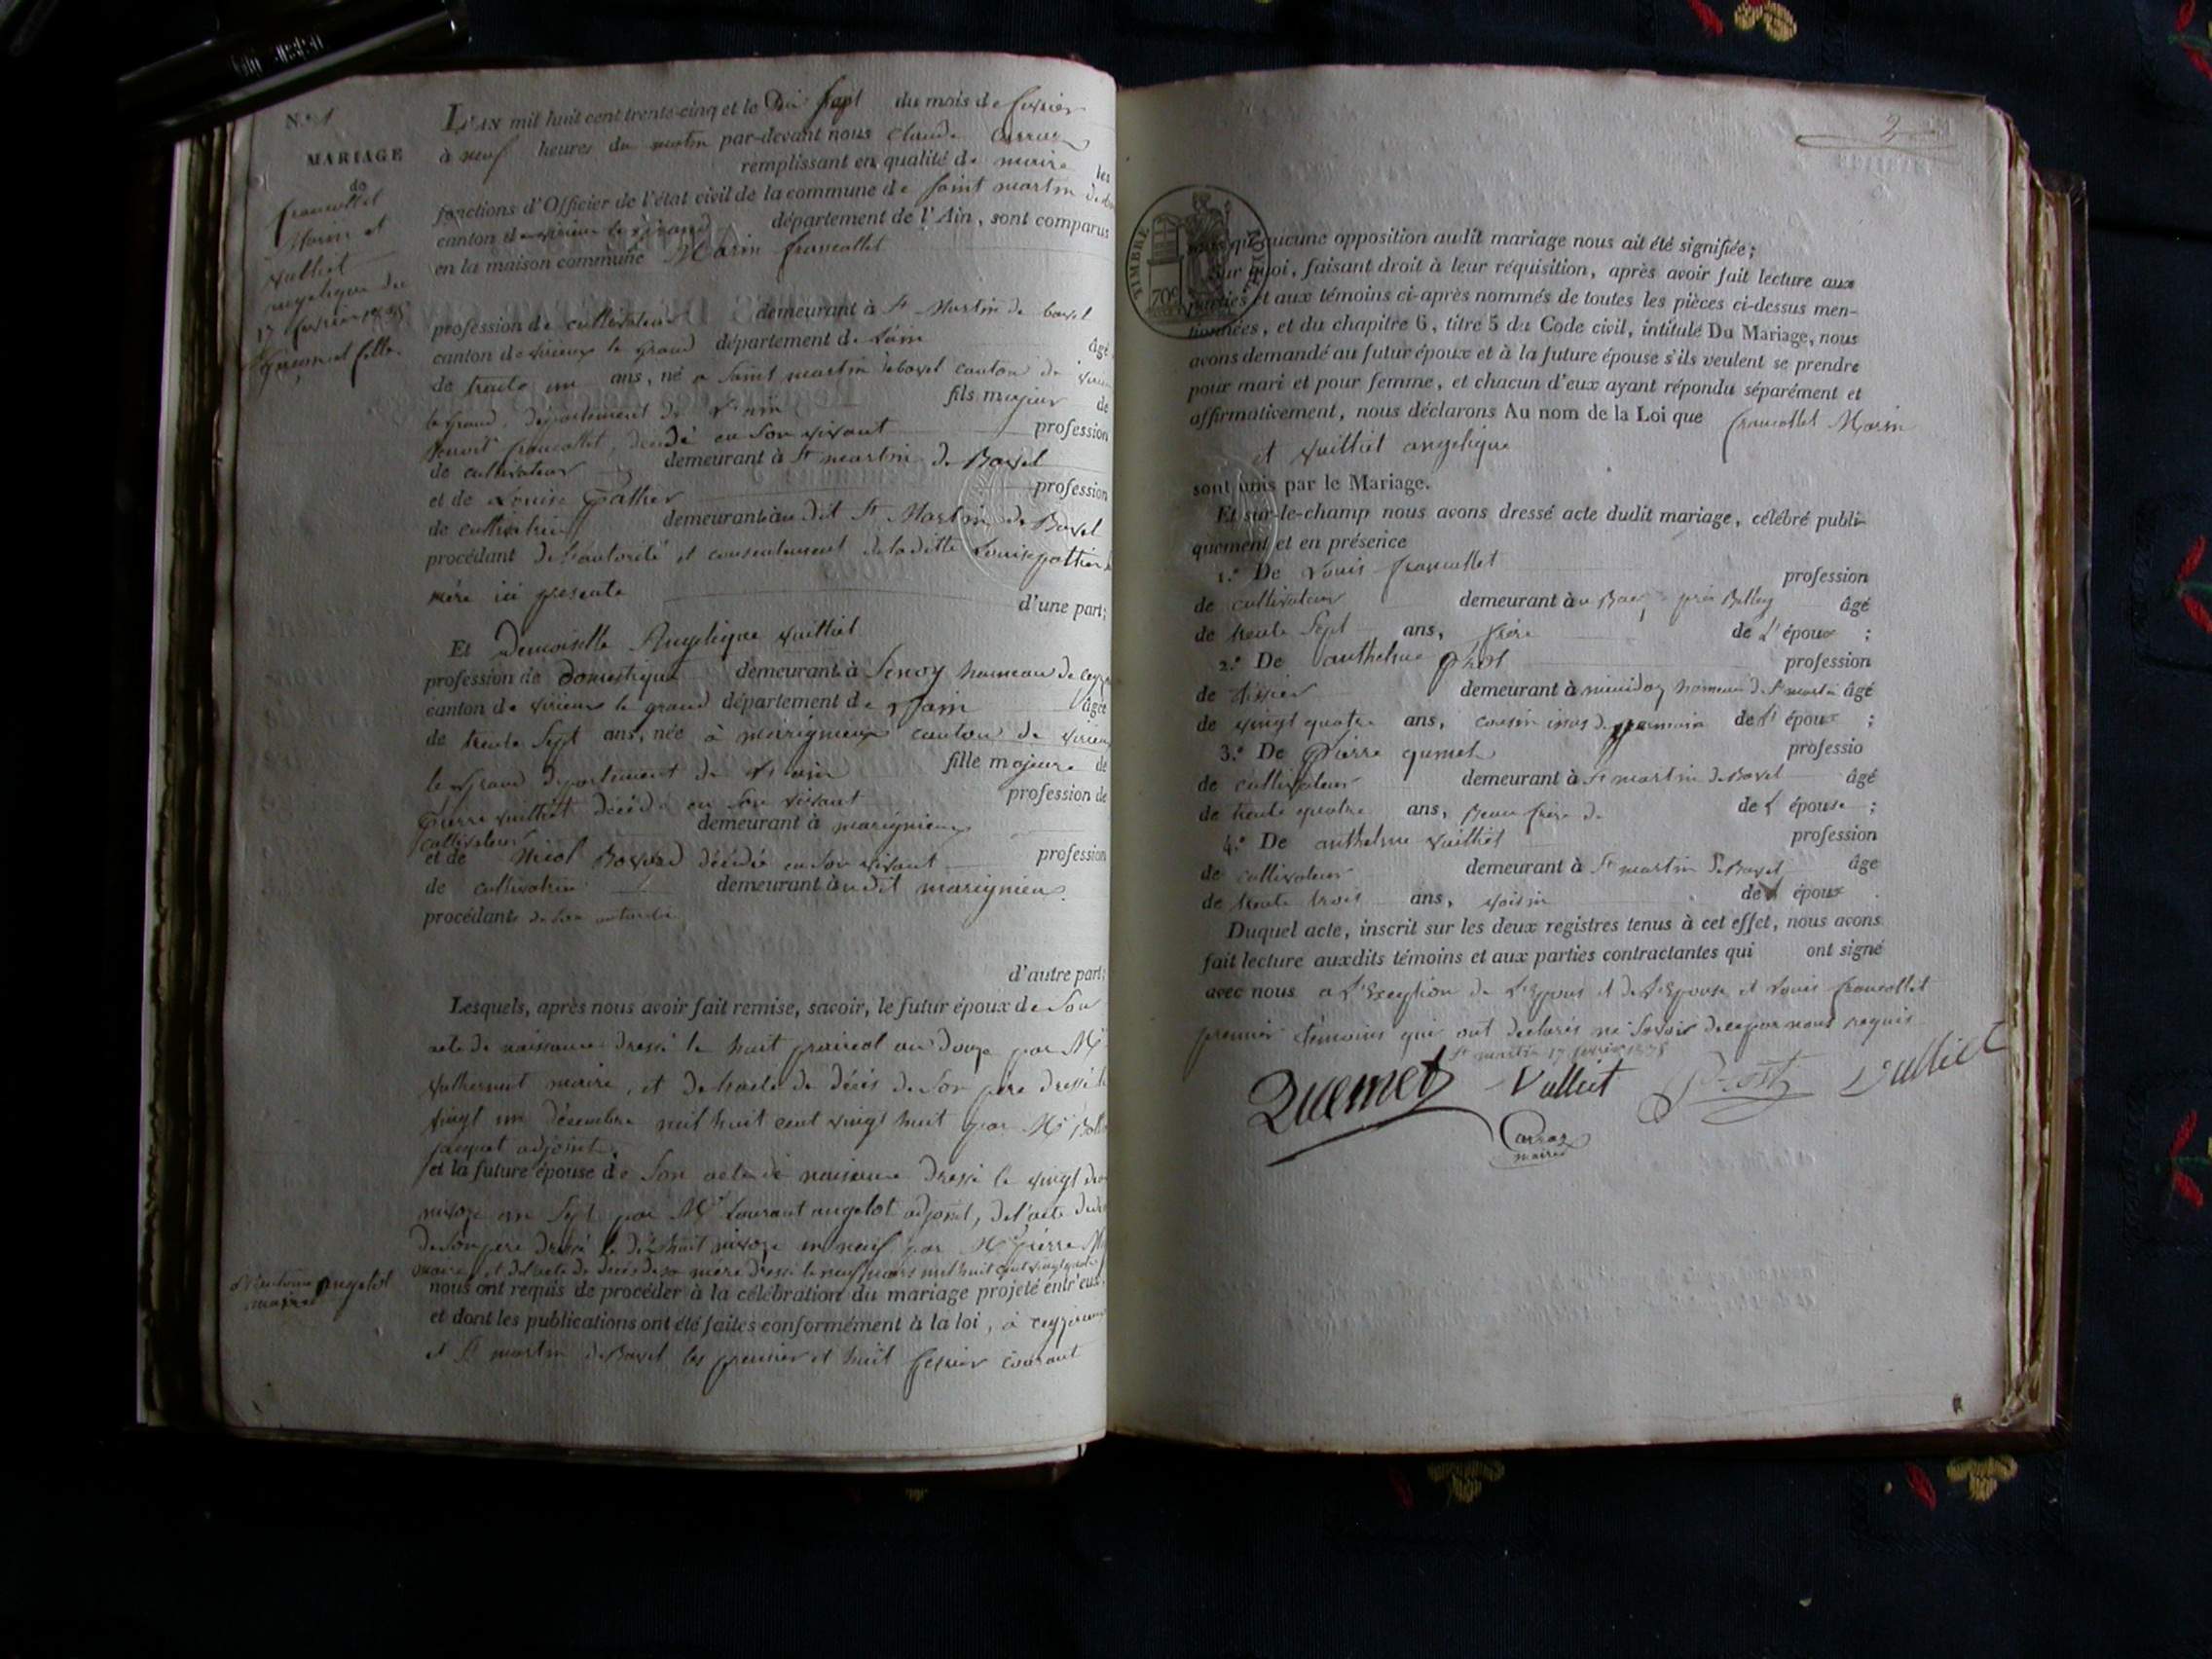 N.º 1
MARIAGE
de
francollet
Marin et
vulliet
angelique du
17 fevrier 1835
garçon et fille.
L'AN mil huit cent trente-cinq et le Dix Sept du mois de fevrier
à neuf heures du matin par-devant nous Claude Carraz
remplissant en qualité de maire les
fonctions d'Officier de l'état civil de la commune de saint martin de
canton de virieux le grand département de l'Ain, sont comparus
en la maison commune Marin francollet
profession de cultivateur demeurant à St Martin de bavel
canton de virieux le grand département de Lain âgé
de trente un ans, né a saint martin de bavel canton de virieu
le grand, département de L'ain fils majeur de
francollet, décédé en son vivant profession
de cultivateur demeurant à St martin de Bavel
et de Louise pathier profession
de cultivatrice demeurant au dit St Martin de Bavel
procédant de l'autorité et consentement de la ditte Louise pathier
mère ici presente
d'une part;
Et Demoiselle Angelique vulliet
profession de Domestique demeurant à hameau de
canton de virieux le grand département de L'ain âgée
de trente sept ans, née à marignieux canton de virieu
le grand departement de L'ain fille majeure de
pierre vulliet décédé en son vivant profession de
cultivateur demeurant à marignieux
et de décédée en son vivant profession
de cultivatrice demeurant audit marignieux.
procédante de son autorité
d'autre part;
Lesquels, après nous avoir fait remise, savoir, le futur époux de son
acte de naissance dressé le huit prairial an douze par Mr
maire, et de l'acte de décès de son père dressé le
vingt un décembre mil huit cent vingt huit par Mr
jacquet adjoint.
et la future épouse de son acte de naissance dressé le vingt
nivoze an sept par Mr Laurant angelot adjoint, de l'acte de
de son pere dressé le dixhuit nivoze an neuf par Mr pierre
maire, et de l'acte de décès de sa mère dressé le neuf mars mil huit cent vingt quatre
angelot
maire
nous ont requis de procéder à la célébration du mariage projeté entr'eux.
et dont les publications ont été faites conformément à la loi, à ceyzerieux
et St martin de Bavel les premier et huit fevrier courant
2
TIMBRE ROYAL
70c
sans qu'aucune opposition audit mariage nous ait été signifiée;
Sur quoi, faisant droit à leur réquisition, après avoir fait lecture aux
parties et aux témoins ci-après nommés de toutes les pièces ci-dessus men-
tionnées, et du chapitre 6, titre 5 du Code civil, intitulé Du Mariage, nous
avons demandé au futur époux et à la future épouse s'ils veulent se prendre
pour mari et pour femme, et chacun d'eux ayant répondu séparément et
affirmativement, nous déclarons Au nom de la Loi que francollet Marin
et vuilliet angelique
sont unis par le Mariage.
Et sur-le-champ nous avons dressé acte dudit mariage, célébré publi-
quement et en présence
1.º De Louis francollet profession
de cultivateur demeurant à près Belley âgé
de trente Sept ans, frère de L'époux ;
2.º De anthelme prost profession
de tissier demeurant à hameau de St martin âgé
de vingt quatre ans, cousin issus de germain de L'époux ;
3.º De Pierre qumet professio
de cultivateur demeurant à St martin de Bavel âgé
de trente quatre ans, Beau frère de de L'épouse ;
4.º De anthelme vuilliet profession
de cultivateur demeurant à St martin de Bavel âge
de trente trois ans, voisin de L'époux .
Duquel acte, inscrit sur les deux registres tenus à cet effet, nous avons
fait lecture auxdits témoins et aux parties contractantes qui ont signé
avec nous a L'Exception de L'Epoux et de L'Epouse et Louis francollet
premier témoins qui ont declarés ne savoir de ce par nous requis
St martin 17 fevrier 1835
Quemet Vulliet Prost Vulliet
Carraz
maire